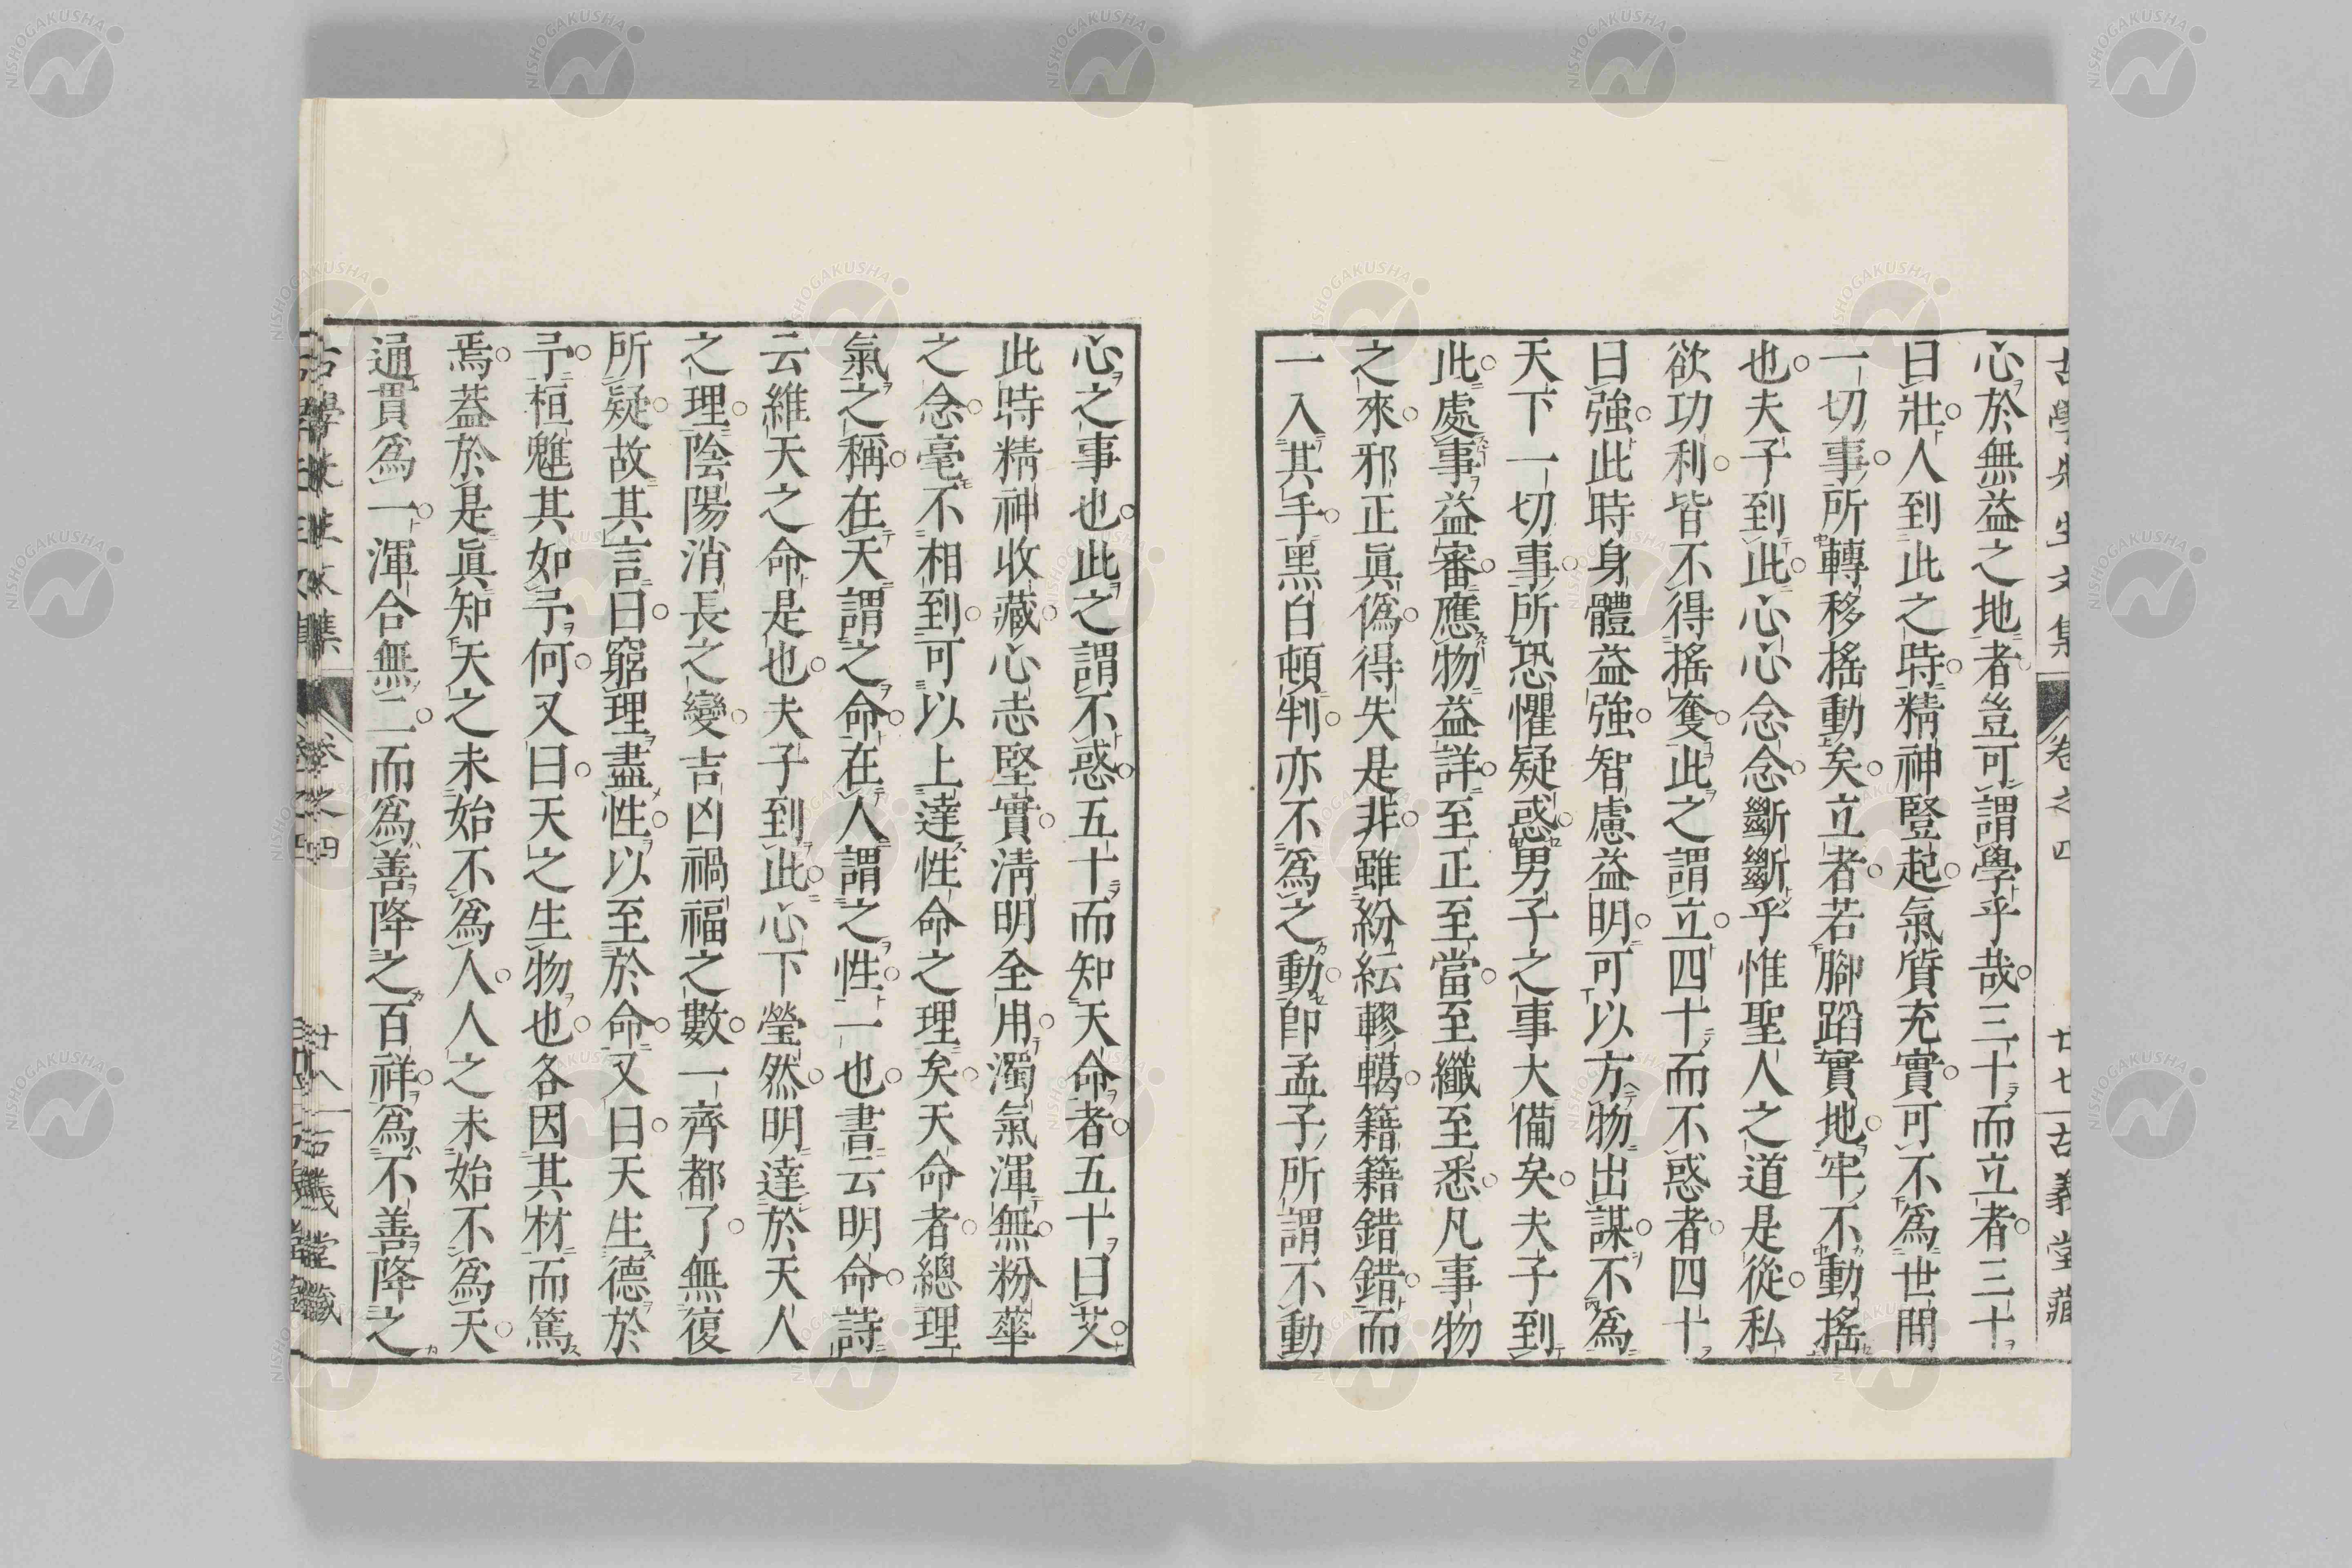 古學先生文集 卷之四 廿七 古義堂藏
心於無益之地者豈可謂學乎哉三十而立者三十
曰壯人到此之時精神豎起氣質充實可不爲世間
一切事所轉移搖動矣立者若腳蹈實地牢不動搖
也夫子到此心心念念斷斷乎惟聖人之道是從私
欲功利皆不得搖奪此之謂立四十而不惑者四十
曰強此時身體益強智慮益明可以方物出謀不爲
天下一切事所恐懼疑惑男子之事大備矣夫子到
此處事益審應物益詳至正至當至纖至悉凡事物
之來邪正眞僞得失是非雖紛紜轇轕籍籍錯錯而
一入其手黑白頓判亦不爲之動卽孟子所謂不動
心之事也此之謂不惑五十而知天命者五十曰艾
此時精神收藏心志堅實淸明全用濁氣渾無粉華
之念毫不相到可以上達性命之理矣天命者總理
氣之稱在天謂之命在人謂之性一也書云明命詩
云維天之命是也夫子到此心下瑩然明達於天人
之理陰陽消長之變吉凶禍福之數一齊都了無復
所疑故其言曰窮理盡性以至於命又曰天生德於
予桓魋其如予何又曰天之生物也各因其材而篤
焉葢於是眞知天之未始不爲人人之未始不爲天
通貫爲一渾合無二而爲善降之百祥爲不善降之
卷之四 廿八 古義堂藏